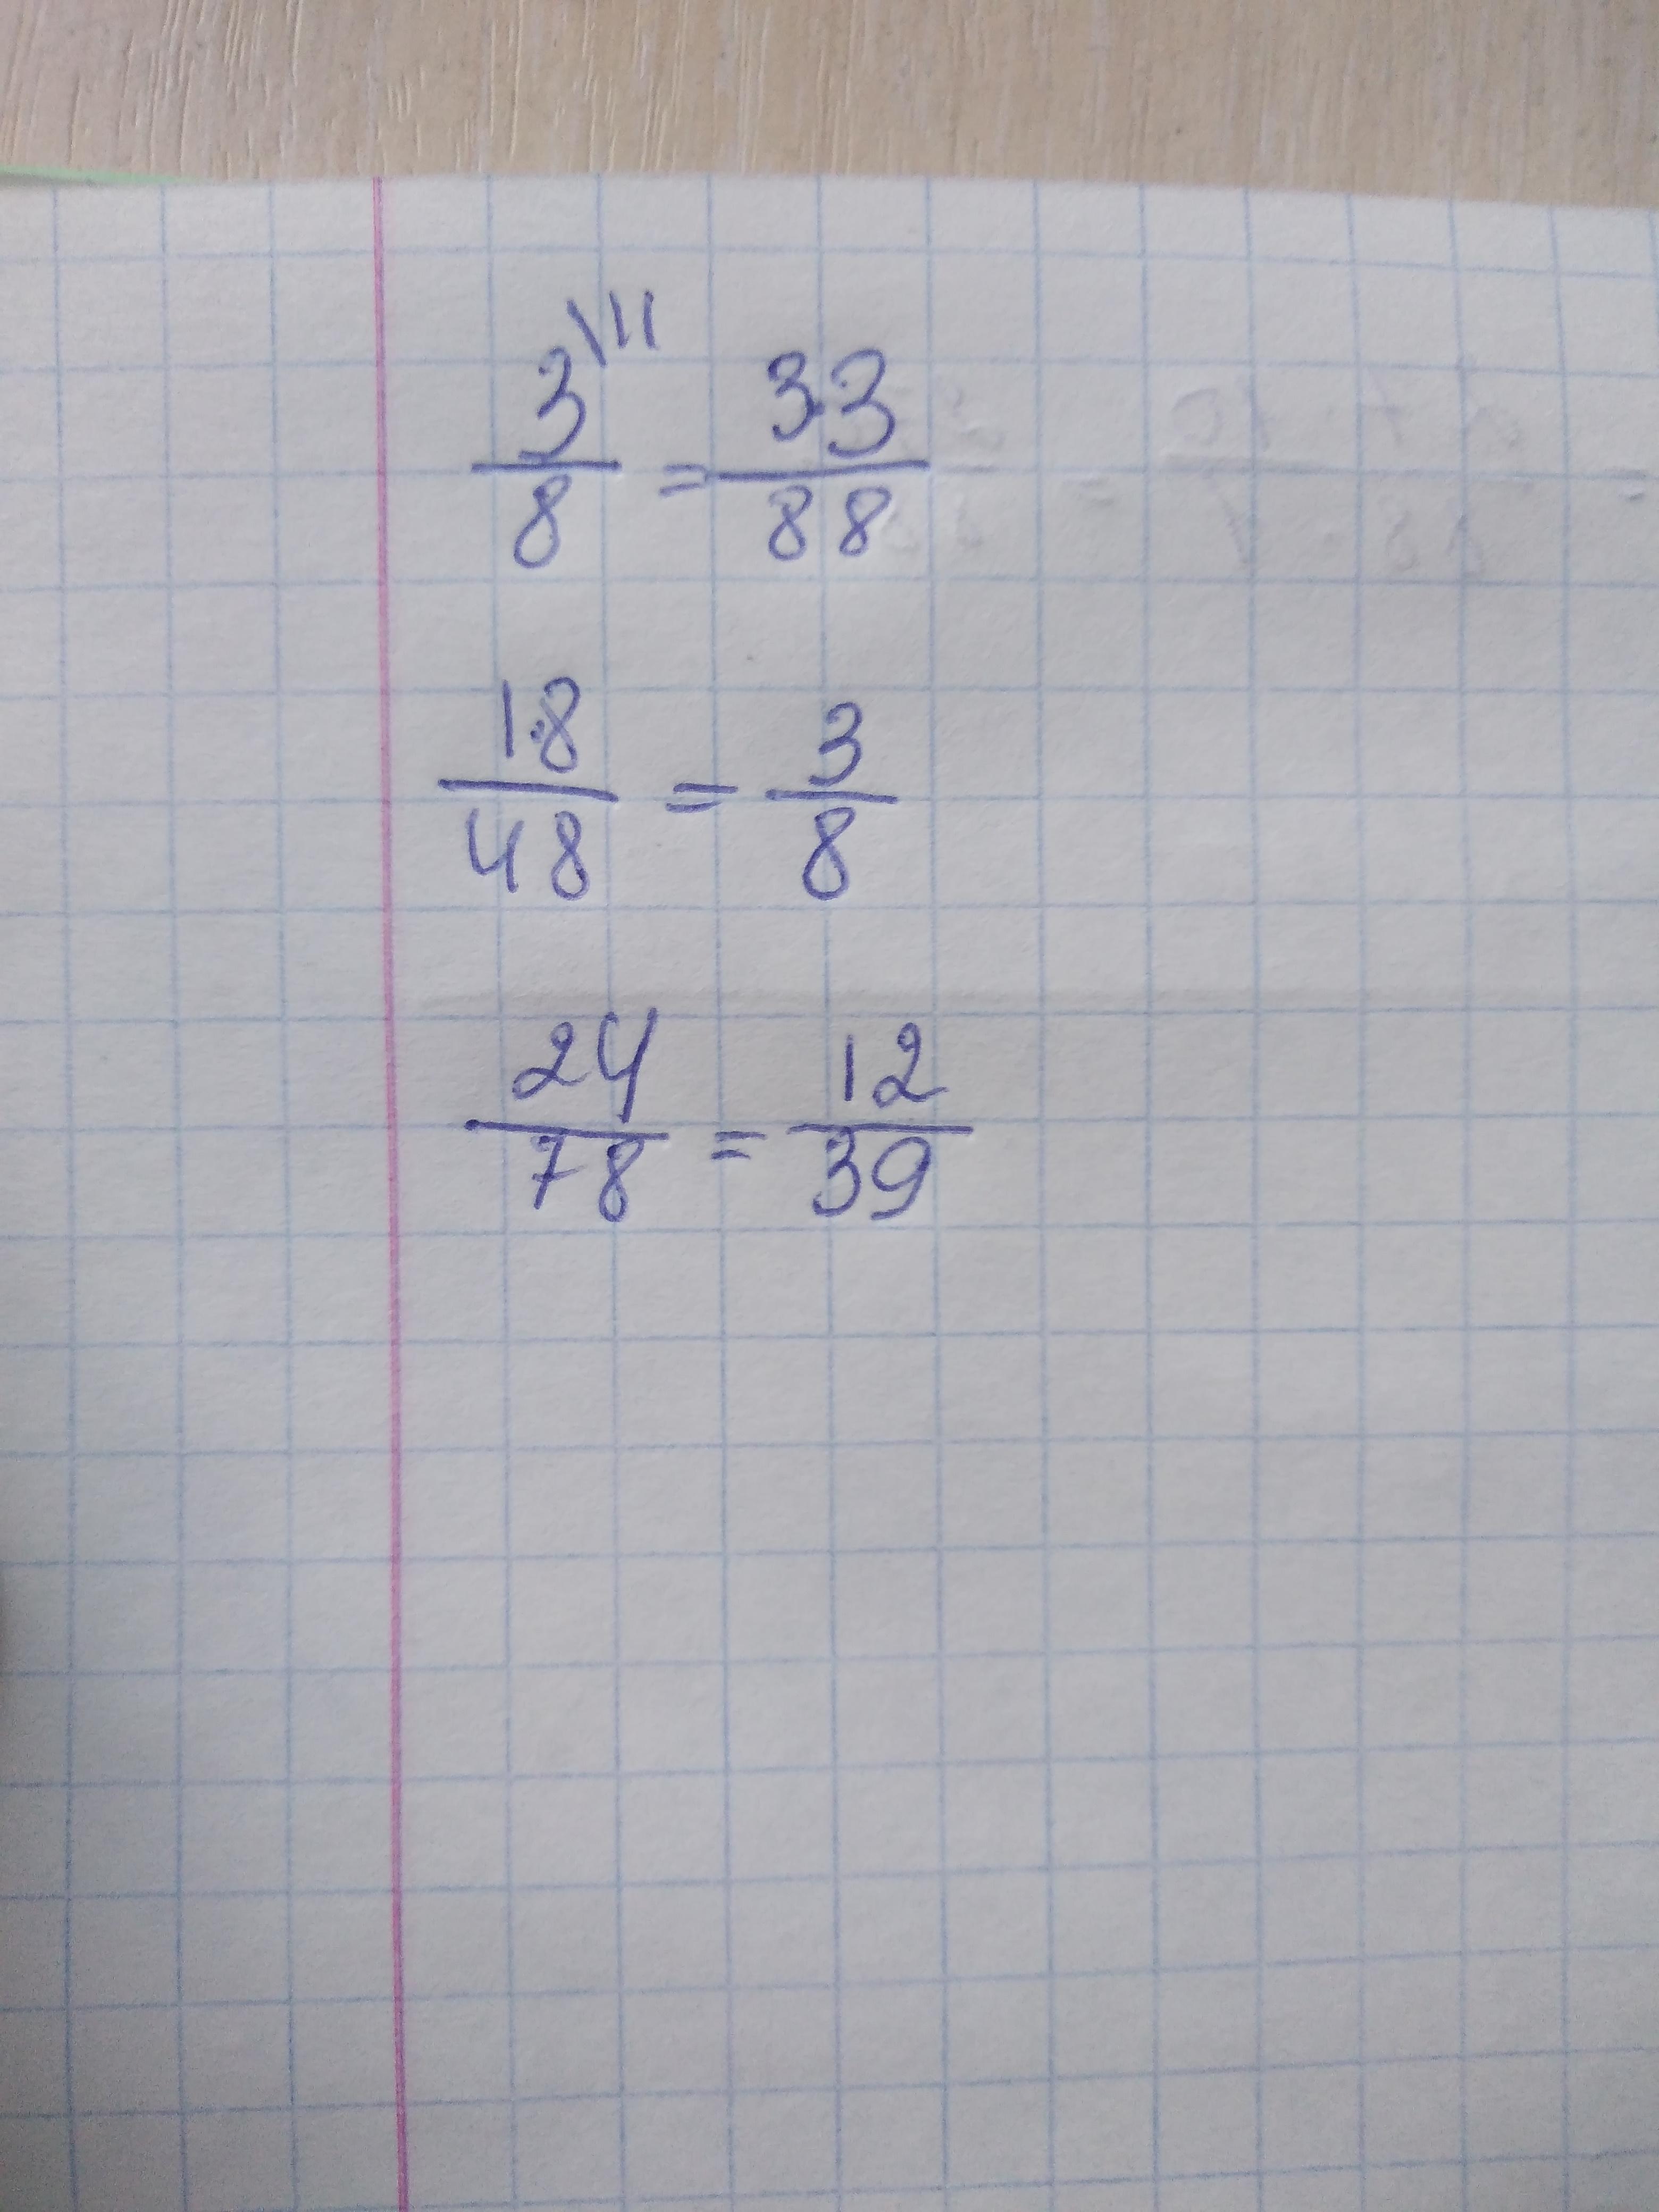 3\11/8 = 33/88
18/48 = 3/8
24/78 = 12/39